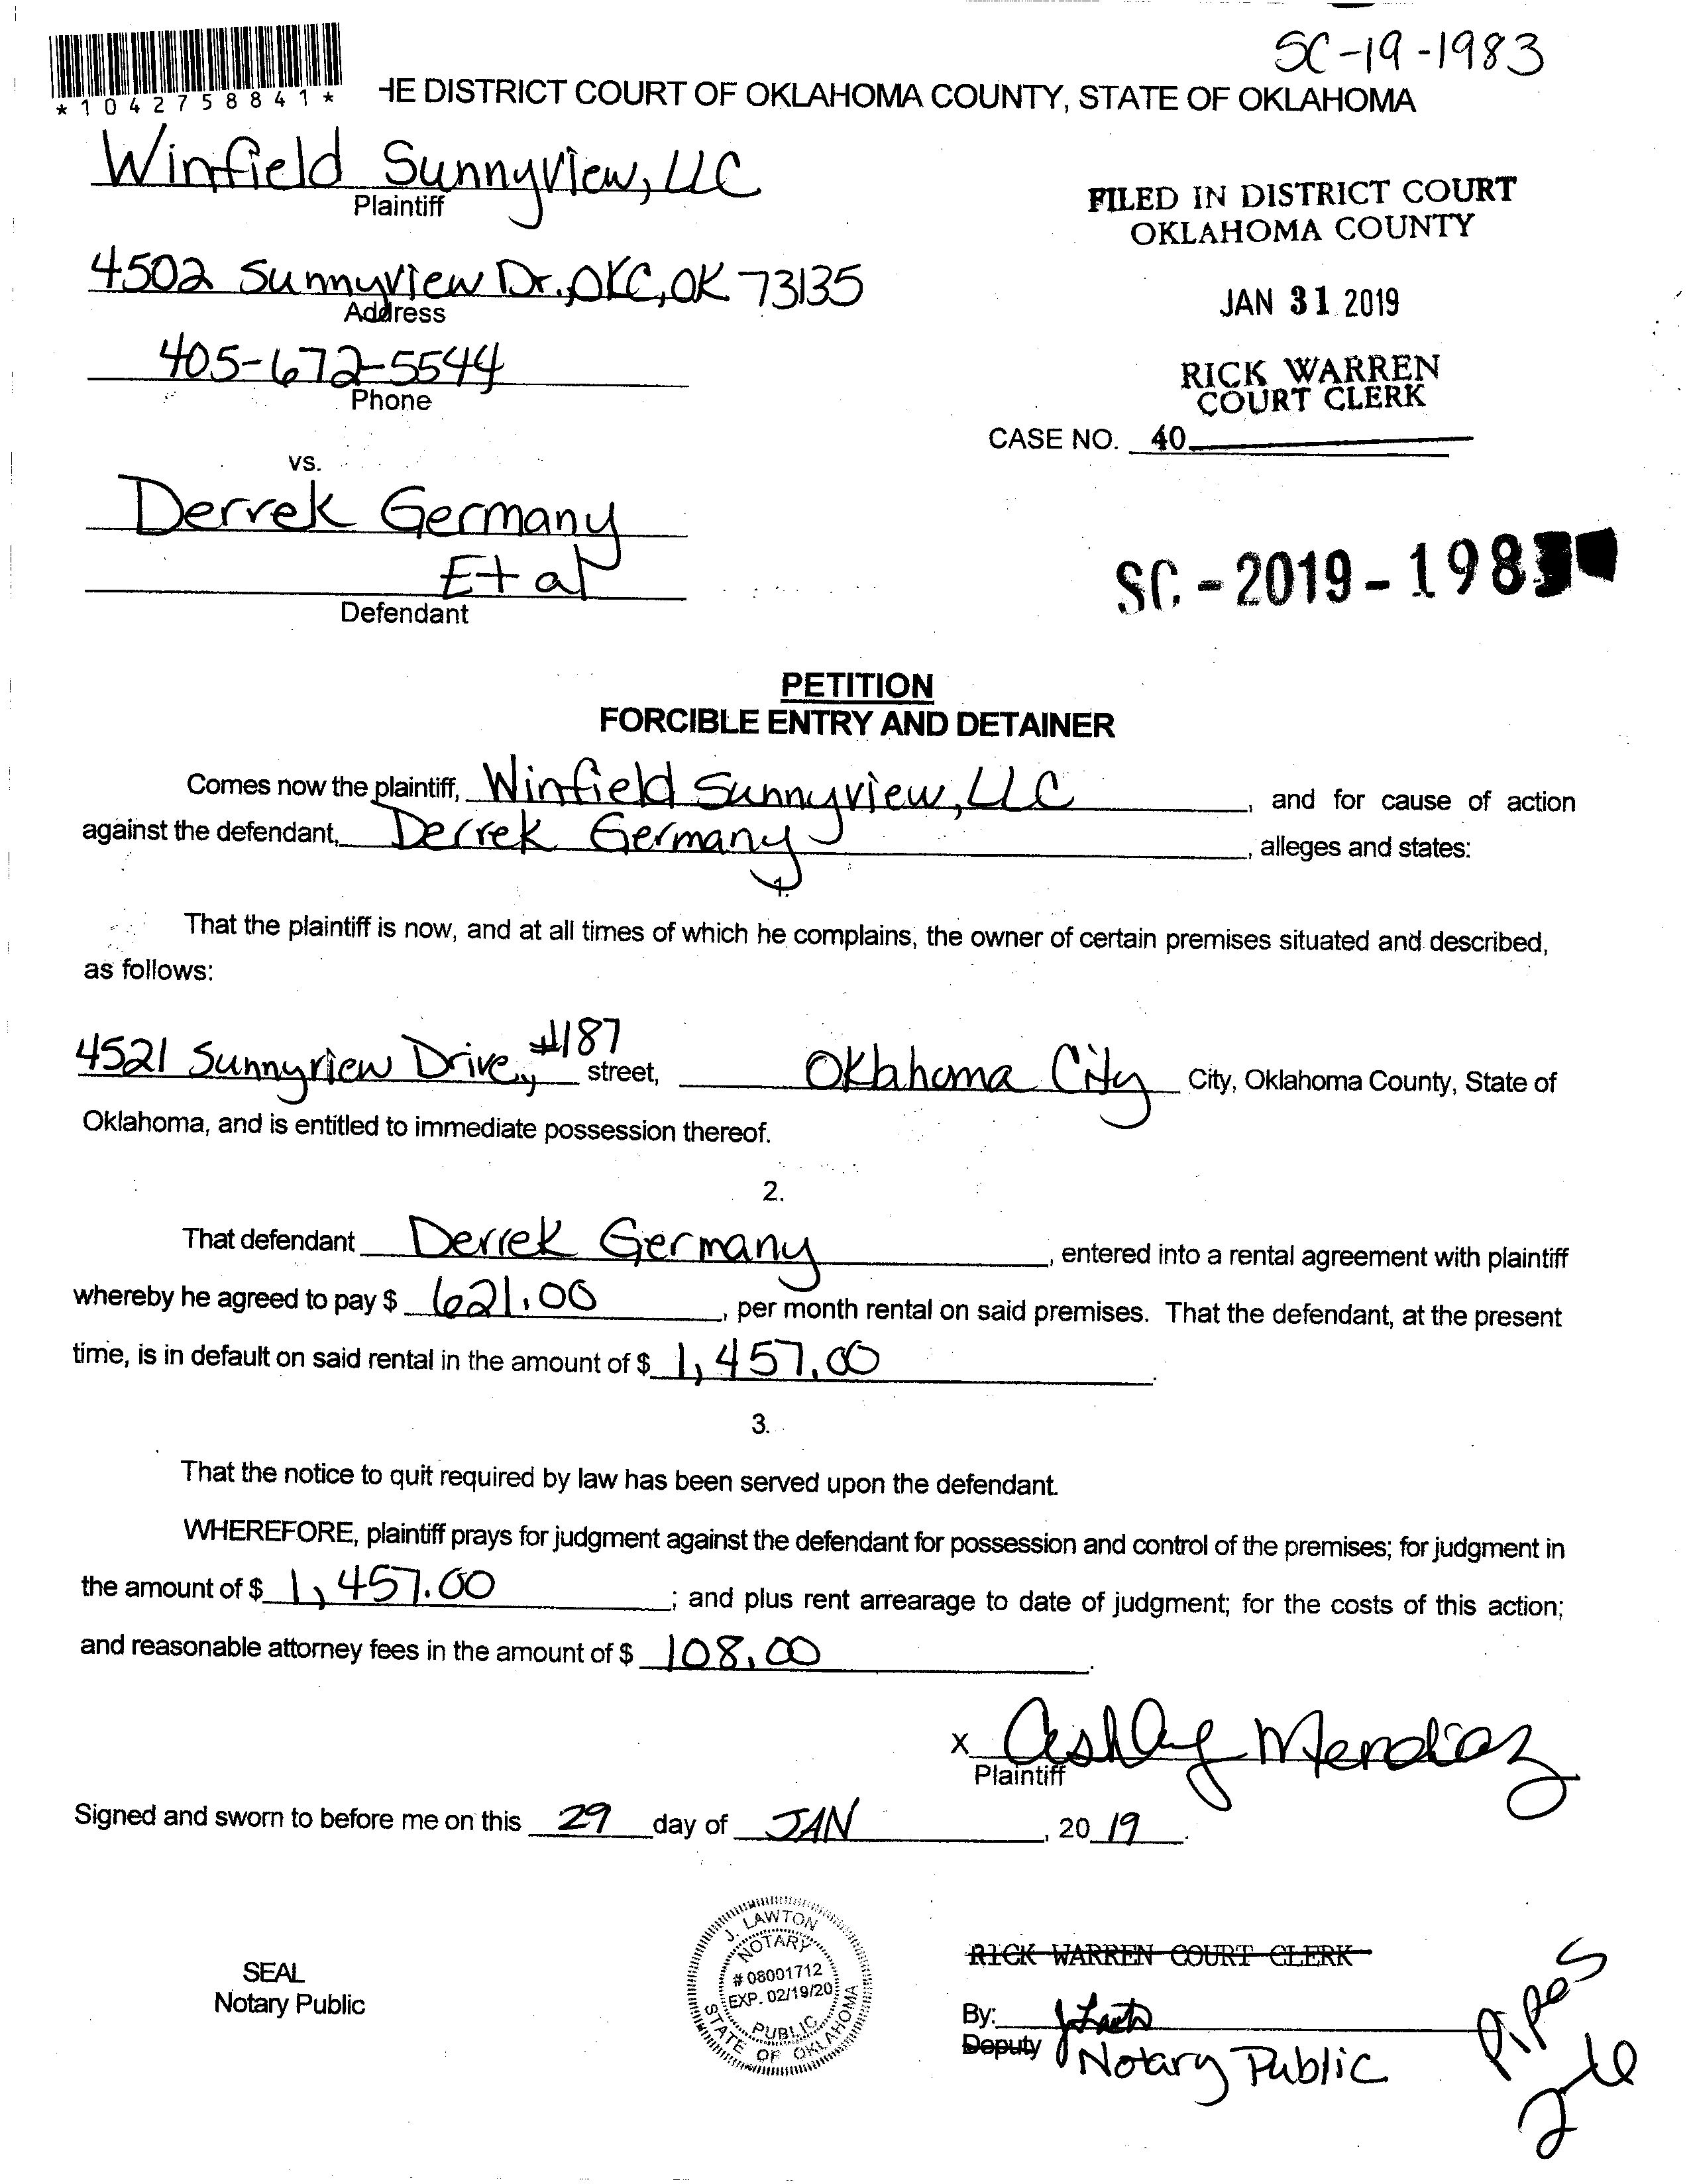 SC-19-1983
*1042758841*
HE DISTRICT COURT OF OKLAHOMA COUNTY, STATE OF OKLAHOMA
Winfield Sunnyview, LLC
Plaintiff
FILED IN DISTRICT COURT
OKLAHOMA COUNTY
4502 Sunnyview Dr., OKC, OK 73135
Address
JAN 31 2019
405-672-5544
Phone
RICK WARREN
COURT CLERK
CASE NO. 40
vs.
Derrek Germany
Et al
Defendant
SC-2019-1983
PETITION
FORCIBLE ENTRY AND DETAINER
Comes now the plaintiff, Winfield Sunnyview, LLC, and for cause of action
against the defendant, Derrek Germany, alleges and states:
1.
That the plaintiff is now, and at all times of which he complains, the owner of certain premises situated and described,
as follows:
4521 Sunnyview Drive, #187 street, Oklahoma City City, Oklahoma County, State of
Oklahoma, and is entitled to immediate possession thereof.
2.
That defendant Derrek Germany, entered into a rental agreement with plaintiff
whereby he agreed to pay $ 621.00, per month rental on said premises. That the defendant, at the present
time, is in default on said rental in the amount of $ 1,457.00.
3.
That the notice to quit required by law has been served upon the defendant.
WHEREFORE, plaintiff prays for judgment against the defendant for possession and control of the premises; for judgment in
the amount of $ 1,457.00; and plus rent arrearage to date of judgment; for the costs of this action;
and reasonable attorney fees in the amount of $ 108.00.
x Ashley Mendiaz
Plaintiff
Signed and sworn to before me on this 29 day of JAN, 20 19.
SEAL
Notary Public
J. LAWTON
NOTARY
# 08001712
EXP. 02/19/20
PUBLIC
STATE OF OKLAHOMA
RICK WARREN COURT CLERK
By:
Deputy Notary Public
Pipes